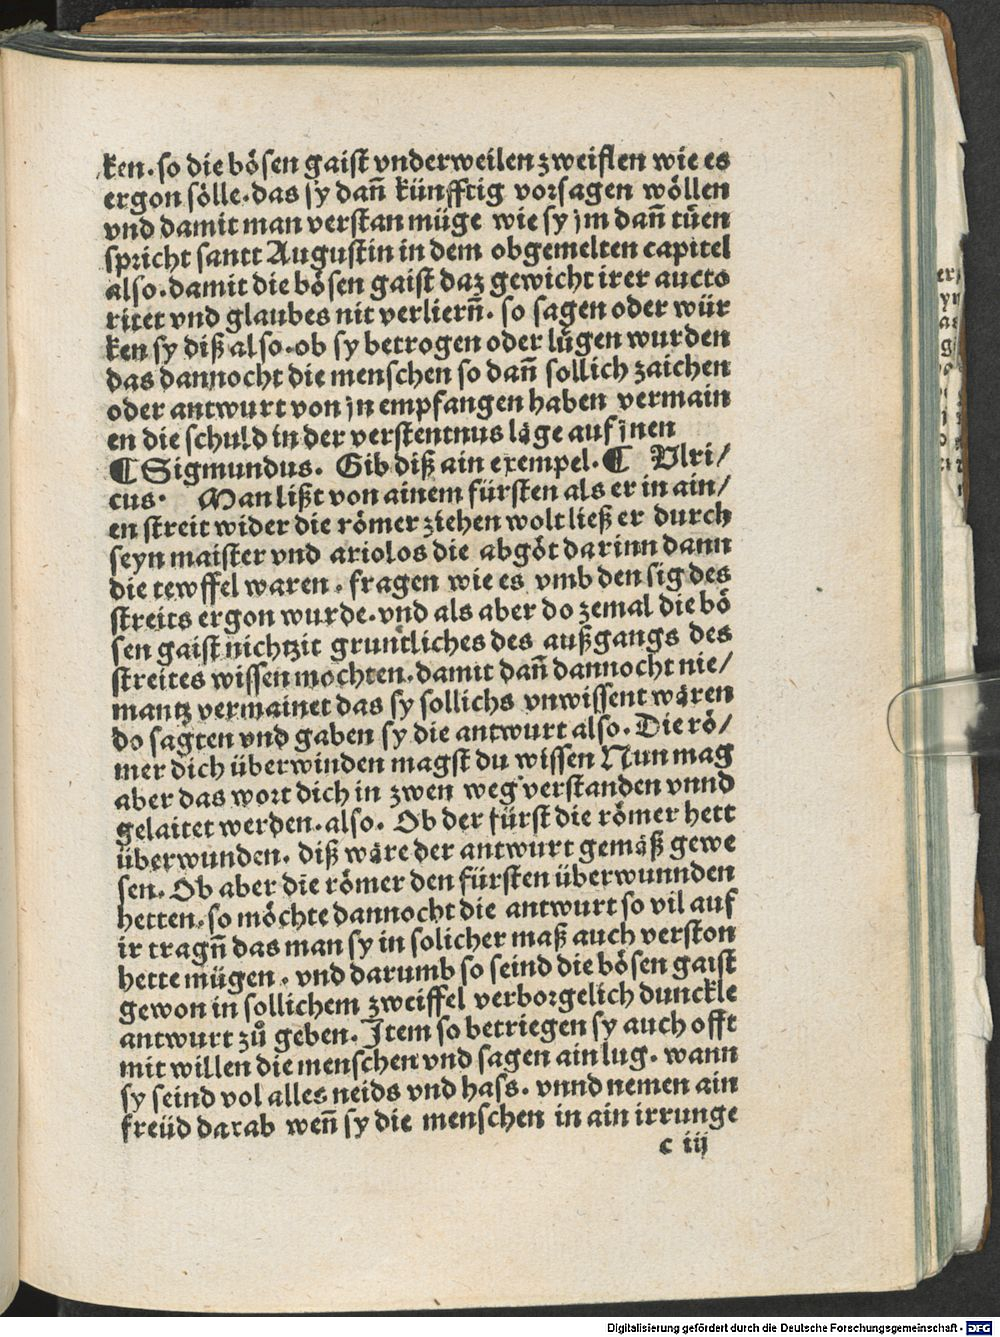 ken. so die bösen gaist vnderweilen zweiflen wie es
ergon sölle. das sy dañ künfftig vorsagen wöllen
vnd damit man verstan müge wie sy jm dañ tüen
spricht sant Augustin in dem obgemelten capitel
also. damit die bösen gaist daz gewicht irer aucto
ritet vnd glaubes nit verlierñ. so sagen oder wür
ken sy diß also. ob sy betrogen oder lugen wurden
das dannocht die menschen so dañ sollich zaichen
oder antwurt von jn empfangen haben vermain
en die schuld in der verstentnus läge auf jnen
¶ Sigmundus. Gib diß ain exempel. ¶ Vlri/
cus. Man lißt von ainem fürsten als er in ain/
en streit wider die römer ziehen wolt ließ er durch
seyn maister vnd ariolos die abgöt darinn dann
die tewffel waren. fragen wie es vmb den sig des
streits ergon wurde. vnd als aber do zemal die bö
sen gaist nichtzit gruntliches des außgangs des
streites wissen mochten. damit dañ dannocht nie/
mantz vermainet das sy sollichs vnwissent wären
do sagten vnd gaben sy die antwurt also. Die rö/
mer dich überwinden magst du wissen Nun mag
aber das wort dich in zwen weg verstanden vnnd
gelaitet werden. also. Ob der fürst die römer hett
überwunden. diß wäre der antwurt gemäß gewe
sen. Ob aber die römer den fürsten überwunnden
hetten. so möchte dannocht die antwurt so vil auf
ir tragñ das man sy in solicher maß auch verston
hette mügen. vnd darumb so seind die bösen gaist
gewon in sollichem zweiffel verborgelich dunckle
antwurt zů geben. Item so betriegen sy auch offt
mit willen die menschen vnd sagen ain lug. wann
sy seind vol alles neids vnd hass. vnnd nemen ain
freüd darab weñ sy die menschen in ain irrunge
c iij
Digitalisierung gefördert durch die Deutsche Forschungsgemeinschaft - DFG